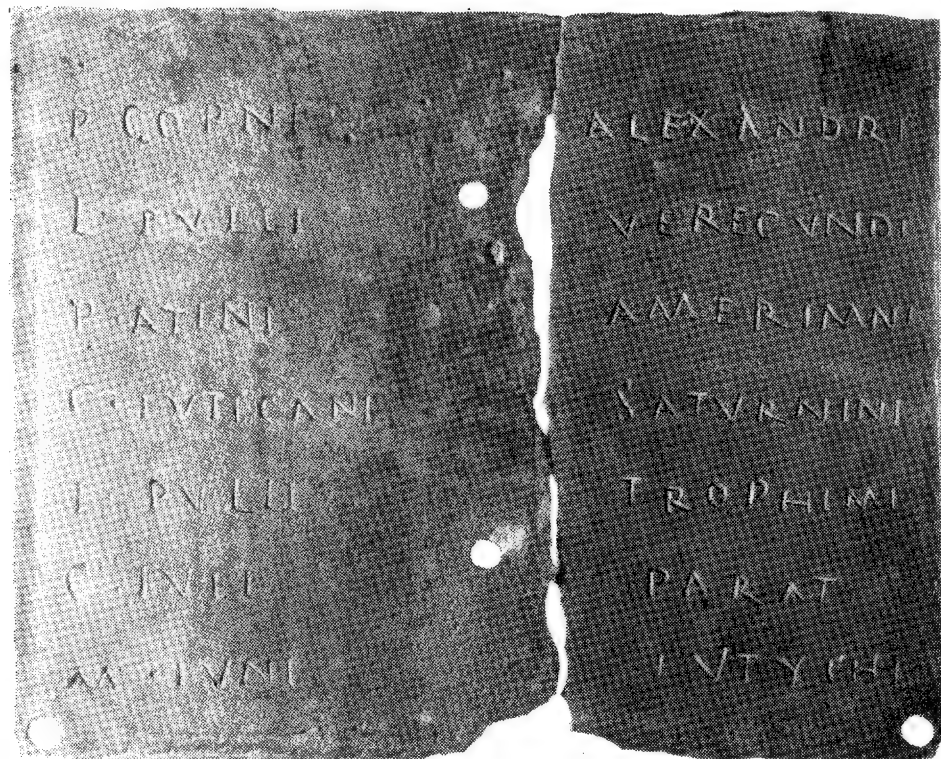 P COPNI ALEXANDRI
L · PVLLI VERECVNDI
P · ATINI AMERIMNI
C · TVTICANI SATVRNINI
PVLLI TROPHIMI
C · IVLI PARAT
M · IVNI